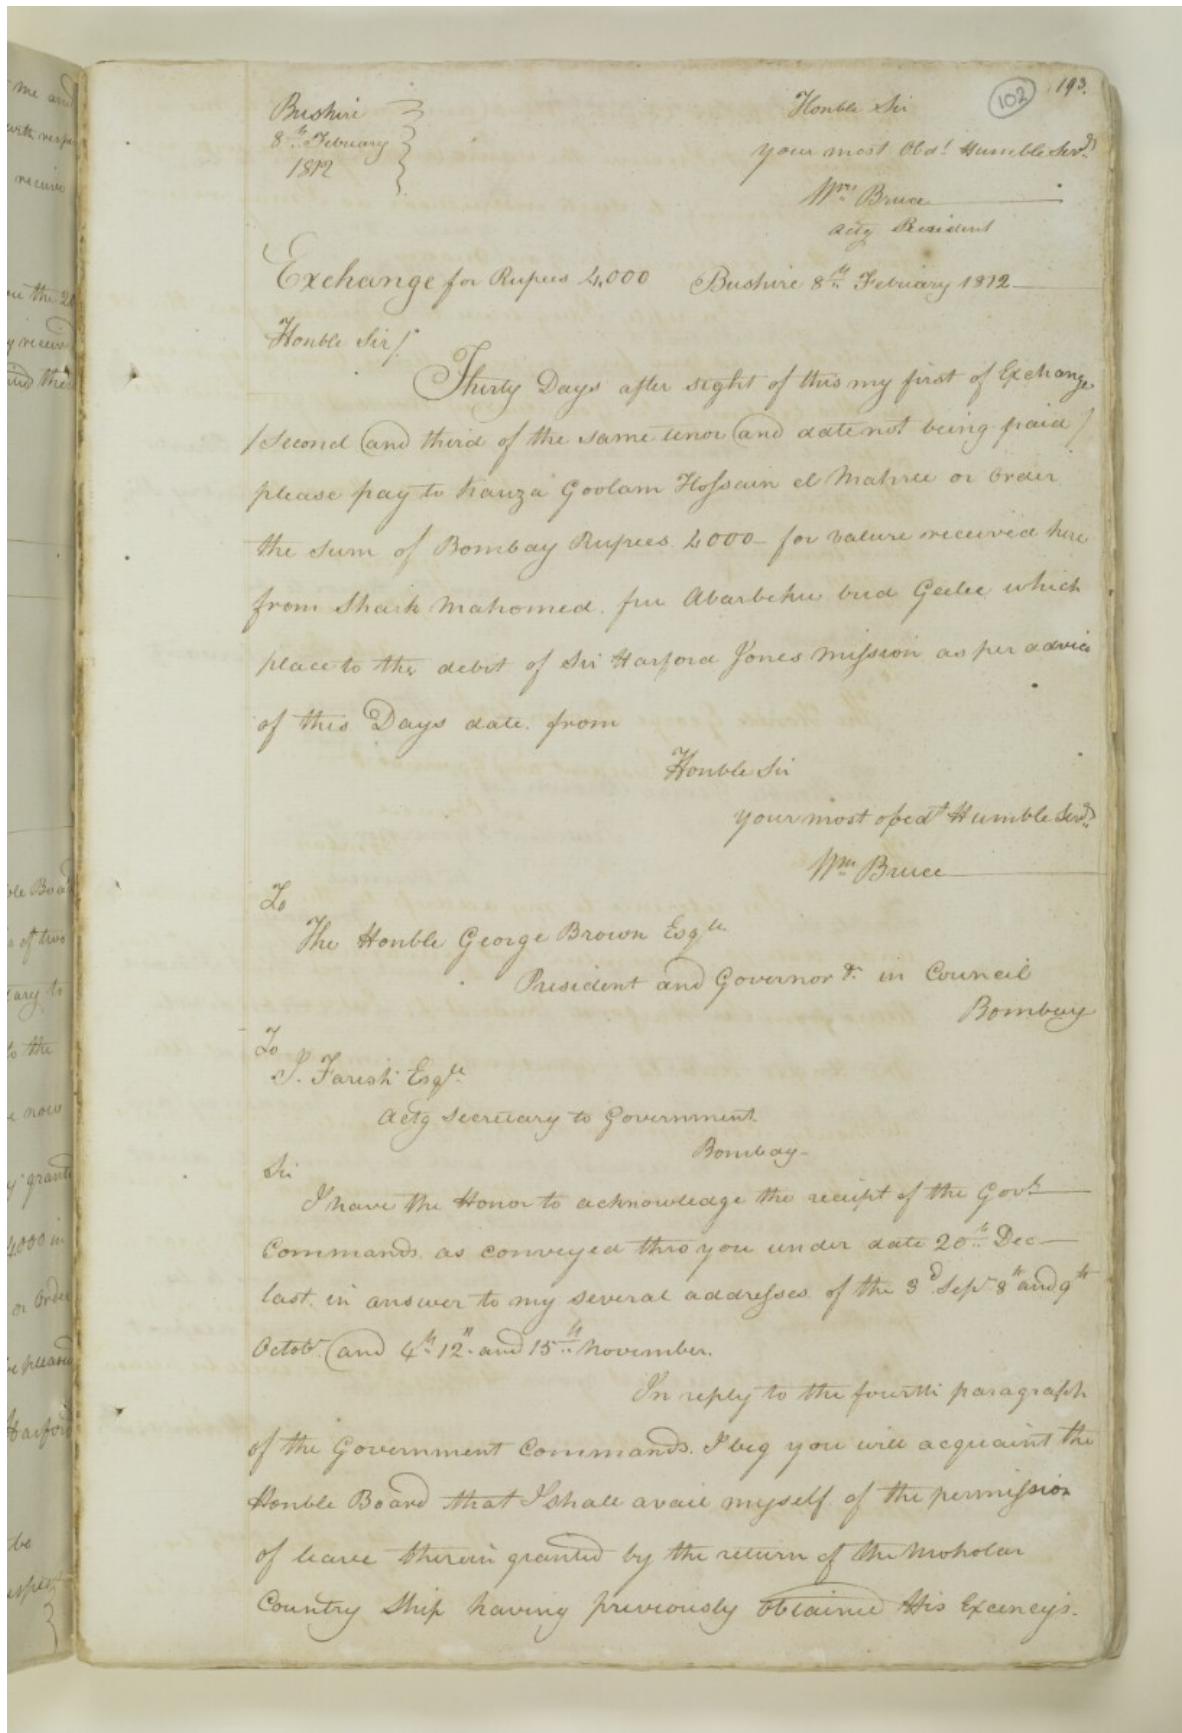 102 193.
Bushire
8th February
1812
Honble Sir
your most Obdt Humble Servt
Wm Bruce
actg Resident
Exchange for Rupees 4,000 Bushire 8th February 1812
Honble Sir/
Thirty Days after sight of this my first of Exchange
/Second and third of the same tenor and date not being paid/
please pay to Goolam Hossain el or Order
the Sum of Bombay Rupees 4000 for value received here
from Shaik Mahomed which
place to the debit of Sir Harford Jones Mission as per advice
of this Days date. from
Honble Sir
your most obedt Humble Servt
Wm Bruce
To
The Honble George Brown Esqre
President and Governor &c in Council
Bombay
To
J. Farish Esqre
Actg Secretary to Government
Bombay-
Sir
I have the Honor to acknowledge the receipt of the Govt
Commands as conveyed thro you under date 20th Dec
last. in answer to my several addresses of the 3d Sepr 8th and 9th
Octobr and 4th 12th and 15th November.
In reply to the fourth paragraph
of the Government Commands. I beg you will acquaint the
Honble Board that I shall avail myself of the permission
of leave therein granted by the return of the
Country Ship having previously obtained His Excencys.
me and
with respe
receive
on the 20
y receiv
and the
ble Boa
s of two
tary to
to the
e now
y grant
4000 in
or Order
be pleased
Harford
be
espect